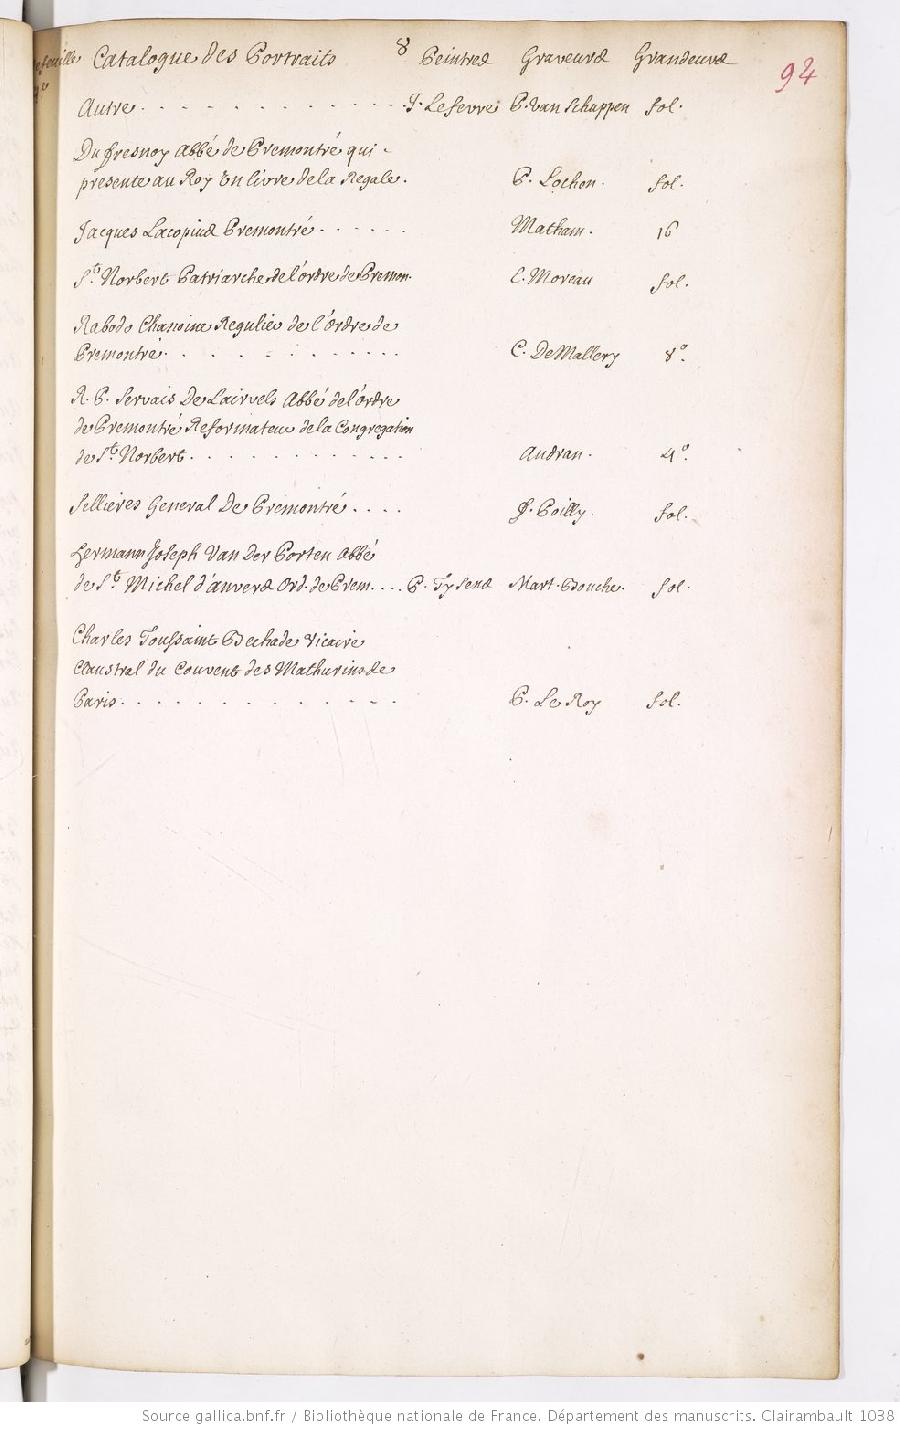 8
Catalogue des Portraits Peintres Graveurs Grandeurs
94
Autre . . . . . . . . . . . . J. Lefevre P. Van Schuppen fol.
Du fresnoy Abbé de Premontré qui
présente au Roy Un livre de la Regale. P. Lochon. fol.
Jacques Lacopius Premontré . . . . . Matham. 16
St. Norbert Patriarche de l'ordre de Premon. C. Moreau fol.
Rabodo Chanoine Regulier de l'Ordre de
Premontré . . . . . . . . . . . C. De Mallery 8º.
R. P. Servais De Lairvels Abbé de l'ordre
de Premontré Reformateur de la Congregation
de St. Norbert . . . . . . . . . . Audran. 4º.
Sellieres General De Premontré . . . . f. Poilly fol.
Hermann Joseph Van Der Porten Abbé
de St. Michel d'anvers Ord. de Prem. . . . P. Tysens Mart. Bouche. fol.
Charles Toussaint Dechade Vicaire
Claustral du Couvent des Mathurins de
Paris . . . . . . . . . . . . P. Le Roy fol.
Source gallica.bnf.fr / Bibliothèque nationale de France. Département des manuscrits. Clairambault 1038